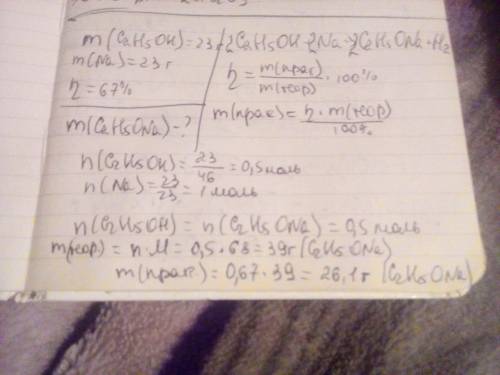 m(C₂H₅OH)=23г
m(Na)=23г
η=67%
m(C₂H₅ONa)-?
2C₂H₅OH+2Na→2C₂H₅ONa+H₂
η=m(прак)/m(теор)·100%
m(прак)=η·m(теор)/100%
n(C₂H₅OH)=23/46=0,5моль
n(Na)=23/23=1моль
n(C₂H₅OH)=n(C₂H₅ONa)=0,5моль
m(теор)=n·M=0,5·68=39г(C₂H₅ONa)
m(прак)=0,67·39=26,1г(C₂H₅ONa)